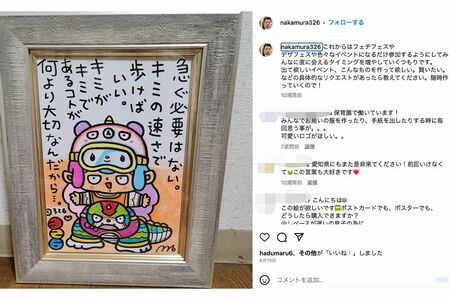 急ぐ必要はない。
キミの速さで
歩けば
いい。
キミが
キミで
あるコトが
何より大切なんだから…。
326
nakamura326 • フォローする
nakamura326 これからはフェチフェスや
デザフェスや色々なイベントになるだけ参加するようにしてみ
んなに直に会えるタイミングを増やしていくつもりです。
出て欲しいイベント、こんなものを作って欲しい。買いたい。
などの具体的なリクエストがあったら教えてください。随時作
っていくので！
10週間前
保育園で働いています！
みんなでお揃いの服を作ったり、手紙を出したりする時に毎
回思う事が。。。
可愛いロゴがほしい。。
7週間前 返信
愛知県にもまた是非来てください！前回いけなく
て😭この言葉も大好きです❤️
10週間前 返信
こんにちは😊
この絵が欲しいです🤩ポストカードでも、ポスターでも、
どうしたら購入できますか？
hadumaru6、その他が「いいね！」しました
6月10日
コメントを追加...